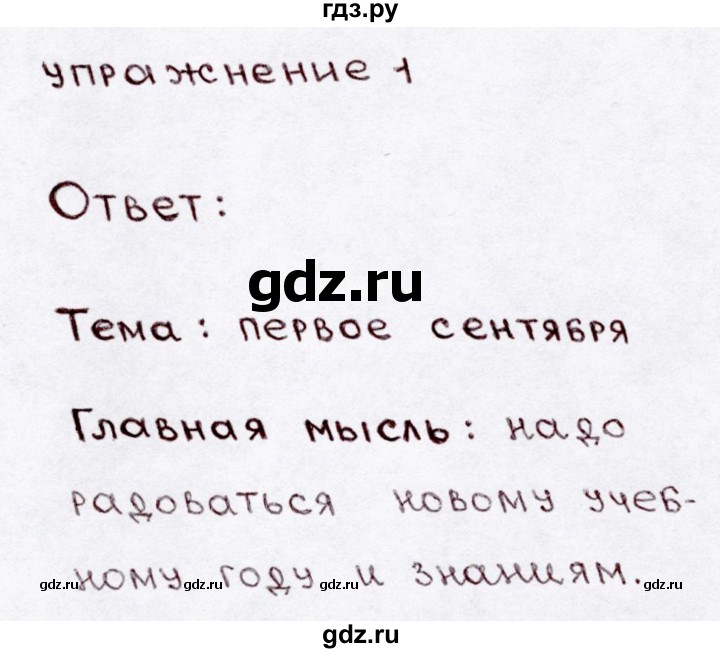 гдз.ру
упражнение 1
Ответ:
gdz.ru
Тема: первое сентября
Главная мысль: надо
радоваться новому учеб-
ному году и знаниям.
gdz.ru gdz.ru gdz.ru gdz.ru gdz.ru
gdz.ru